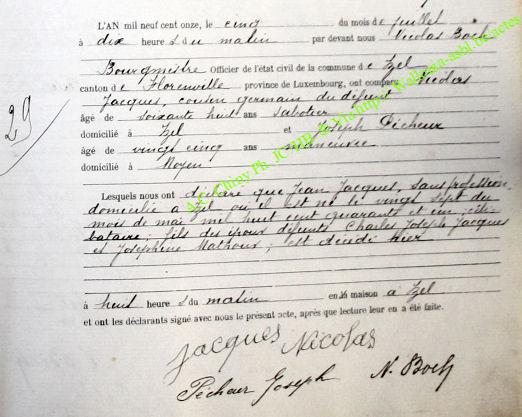 L'AN mil neuf cent onze, le cinq du mois de juillet
à dix heures du matin par devant nous Nicolas Boch
Bourgmestre Officier de l'état civil de la commune de Izel
canton de Florenville, province de Luxembourg, ont comparu Nicolas
Jacques, cousin germain du défunt
âgé de soixante huit ans sabotier
domicilié à Izel et Joseph Pêcheur
âgé de vingt cinq ans manœuvre
domicilié à Moyen
29
Lesquels nous ont déclaré que Jean Jacques, sans profession
domicilié à Izel où il est né le vingt sept du
mois de mai mil huit cent quarante et un, céli-
bataire; fils des époux défunts Charles Joseph Jacques
et Joséphine Mathoux; est décédé hier
à huit heures du matin en sa maison à Izel
et ont les déclarants signé avec nous le présent acte, après que lecture leur en a été faite.
Jacques Nicolas
Pêcheur Joseph N. Boch